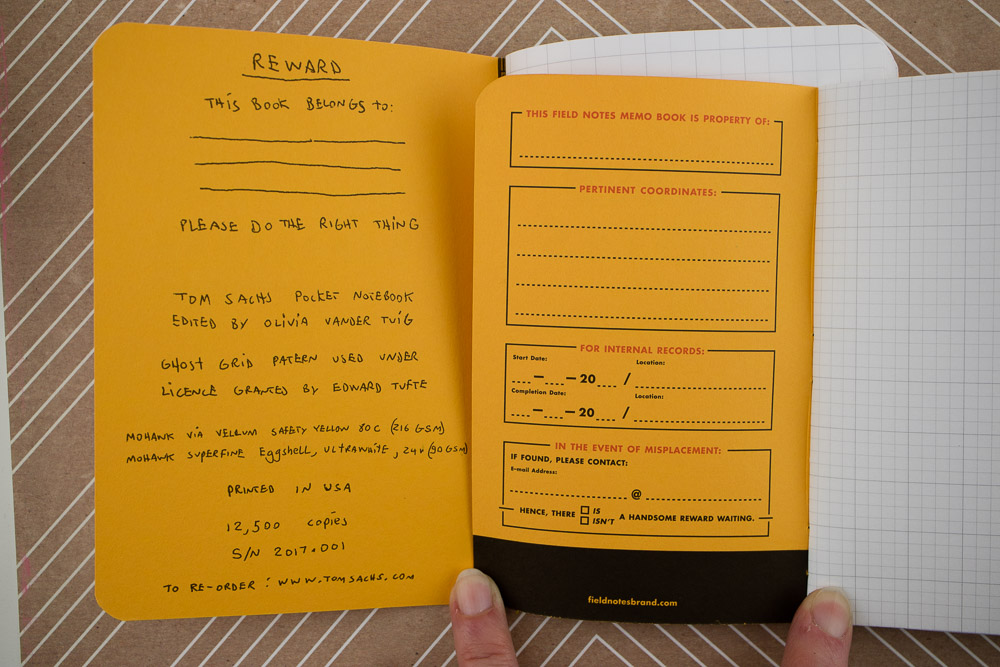 REWARD
THIS BOOK BELONGS TO:
PLEASE DO THE RIGHT THING
TOM SACHS POCKET NOTEBOOK
EDITED BY OLIVIA VANDER TUIG
GHOST GRID PATERN USED UNDER
LICENCE GRANTED BY EDWARD TUFTE
MOHAWK VIA VELLUM SAFETY YELLOW 80C (216 GSM)
MOHAWK SUPERFINE Eggshell, ULTRAWHITE, 24W (90 GSM)
PRINTED IN USA
12,500 copies
S/N 2017.001
TO RE-ORDER : WWW.TOMSACHS.COM
THIS FIELD NOTES MEMO BOOK IS PROPERTY OF:
PERTINENT COORDINATES:
FOR INTERNAL RECORDS:
Start Date: Location:
— — 20 /
Completion Date: Location:
— — 20 /
IN THE EVENT OF MISPLACEMENT:
IF FOUND, PLEASE CONTACT:
E-mail Address:
@
HENCE, THERE ☐ IS ☐ ISN'T A HANDSOME REWARD WAITING.
fieldnotesbrand.com